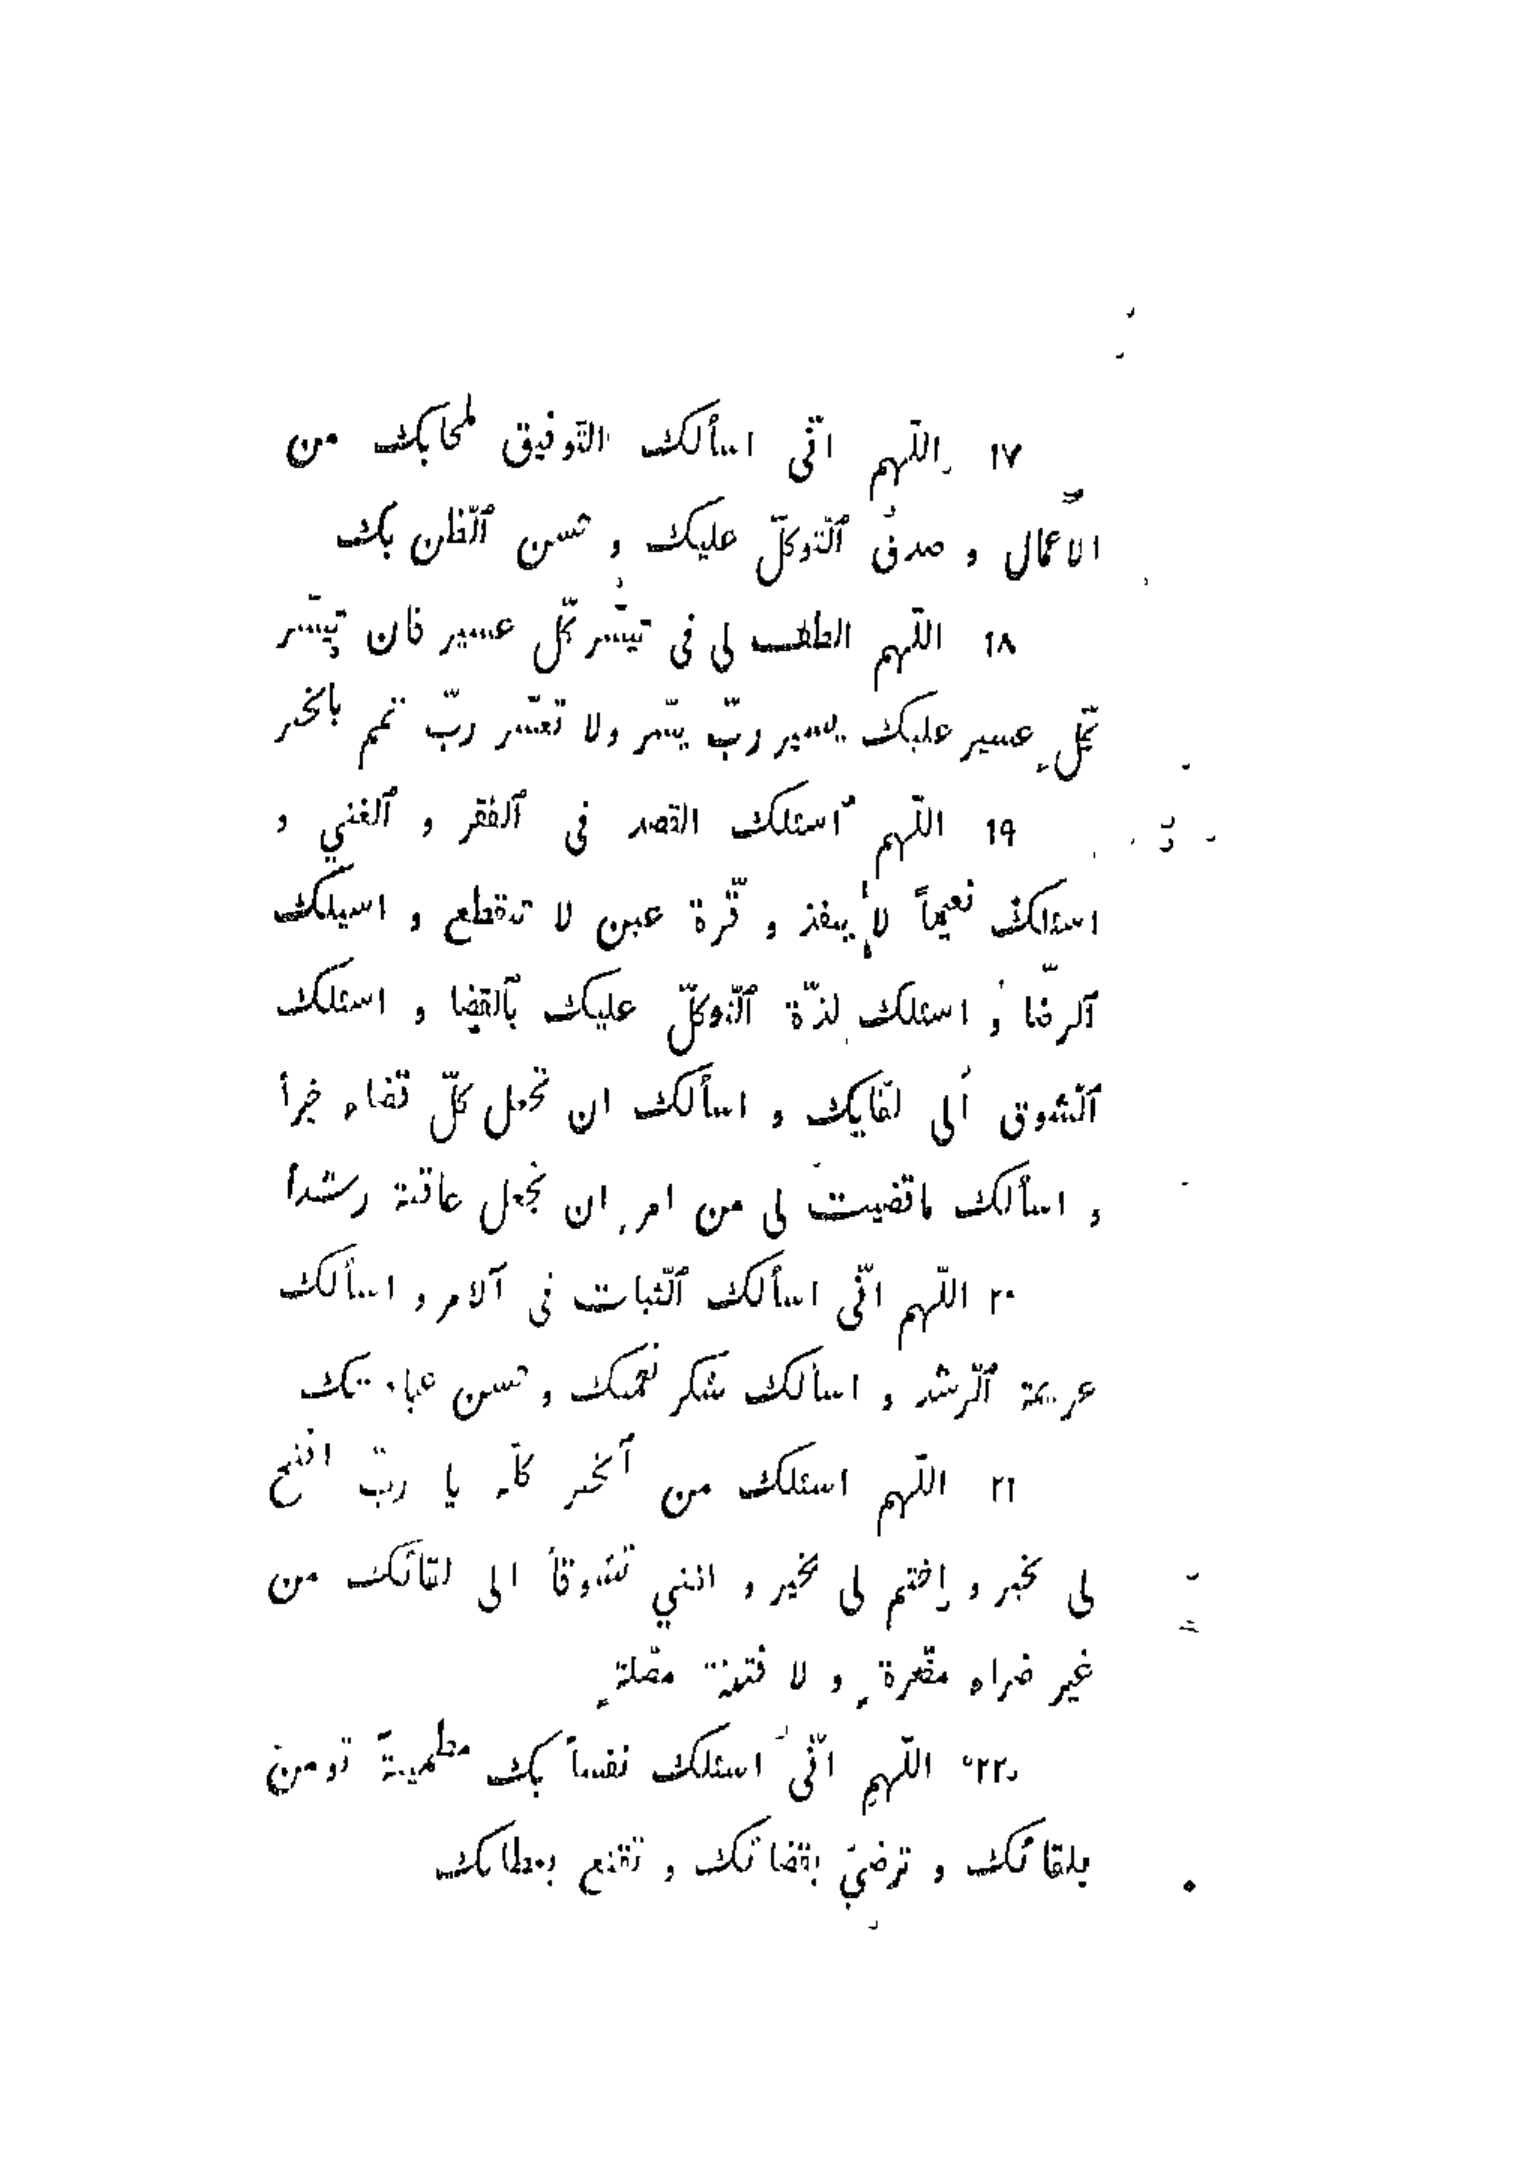 ١٧ اللّهم انّى اسألك التّوفيق لمحابك من
الأعمال و صدق ٱلتّوكلّ عليك و حسن ٱلظّن بك
١٨ اللّهم الطف لى فى تيسّر كلّ عسير فان تيسّر
كلّ عسير عليك يسير ربّ يسّر ولا تعسّر ربّ تمم بالخير
١٩ اللّهم اسئلك القصد فى ٱلفقر و ٱلغني و
اسئلك نعيماً لا ينفذ و قرّة عين لا تنقطع و اسيلك
ٱلرضّا و اسئلك لذّة ٱلتّوكلّ عليك بٱلقضا و اسئلك
ٱلشّوق ألى لقايك و اسألك ان تجعل كلّ قضاء خيرأ
و اسألك ماقضيت لى من امر ان تجعل عاقبة رشدأ
٢٠ اللّهم انّى اسألك ٱلثّبات فى ٱلامر و اسألك
عزيمة ٱلرّشد و اسألك شكر نعمتك و حسن عبادتك
٢١ اللّهم اسئلك من ٱلخير كلّه يا ربّ افتح
لى بخير و إختم لى بخير و اتنى تشوقأ الى لقائك من
غير ضراء مضّرة و لا فتنة مضّلة
٢٢ اللّهم انّى اسئلك نفسأ بك مطمينة تومن
بلقائك و ترضي بقضائك و تقنع بعطائك